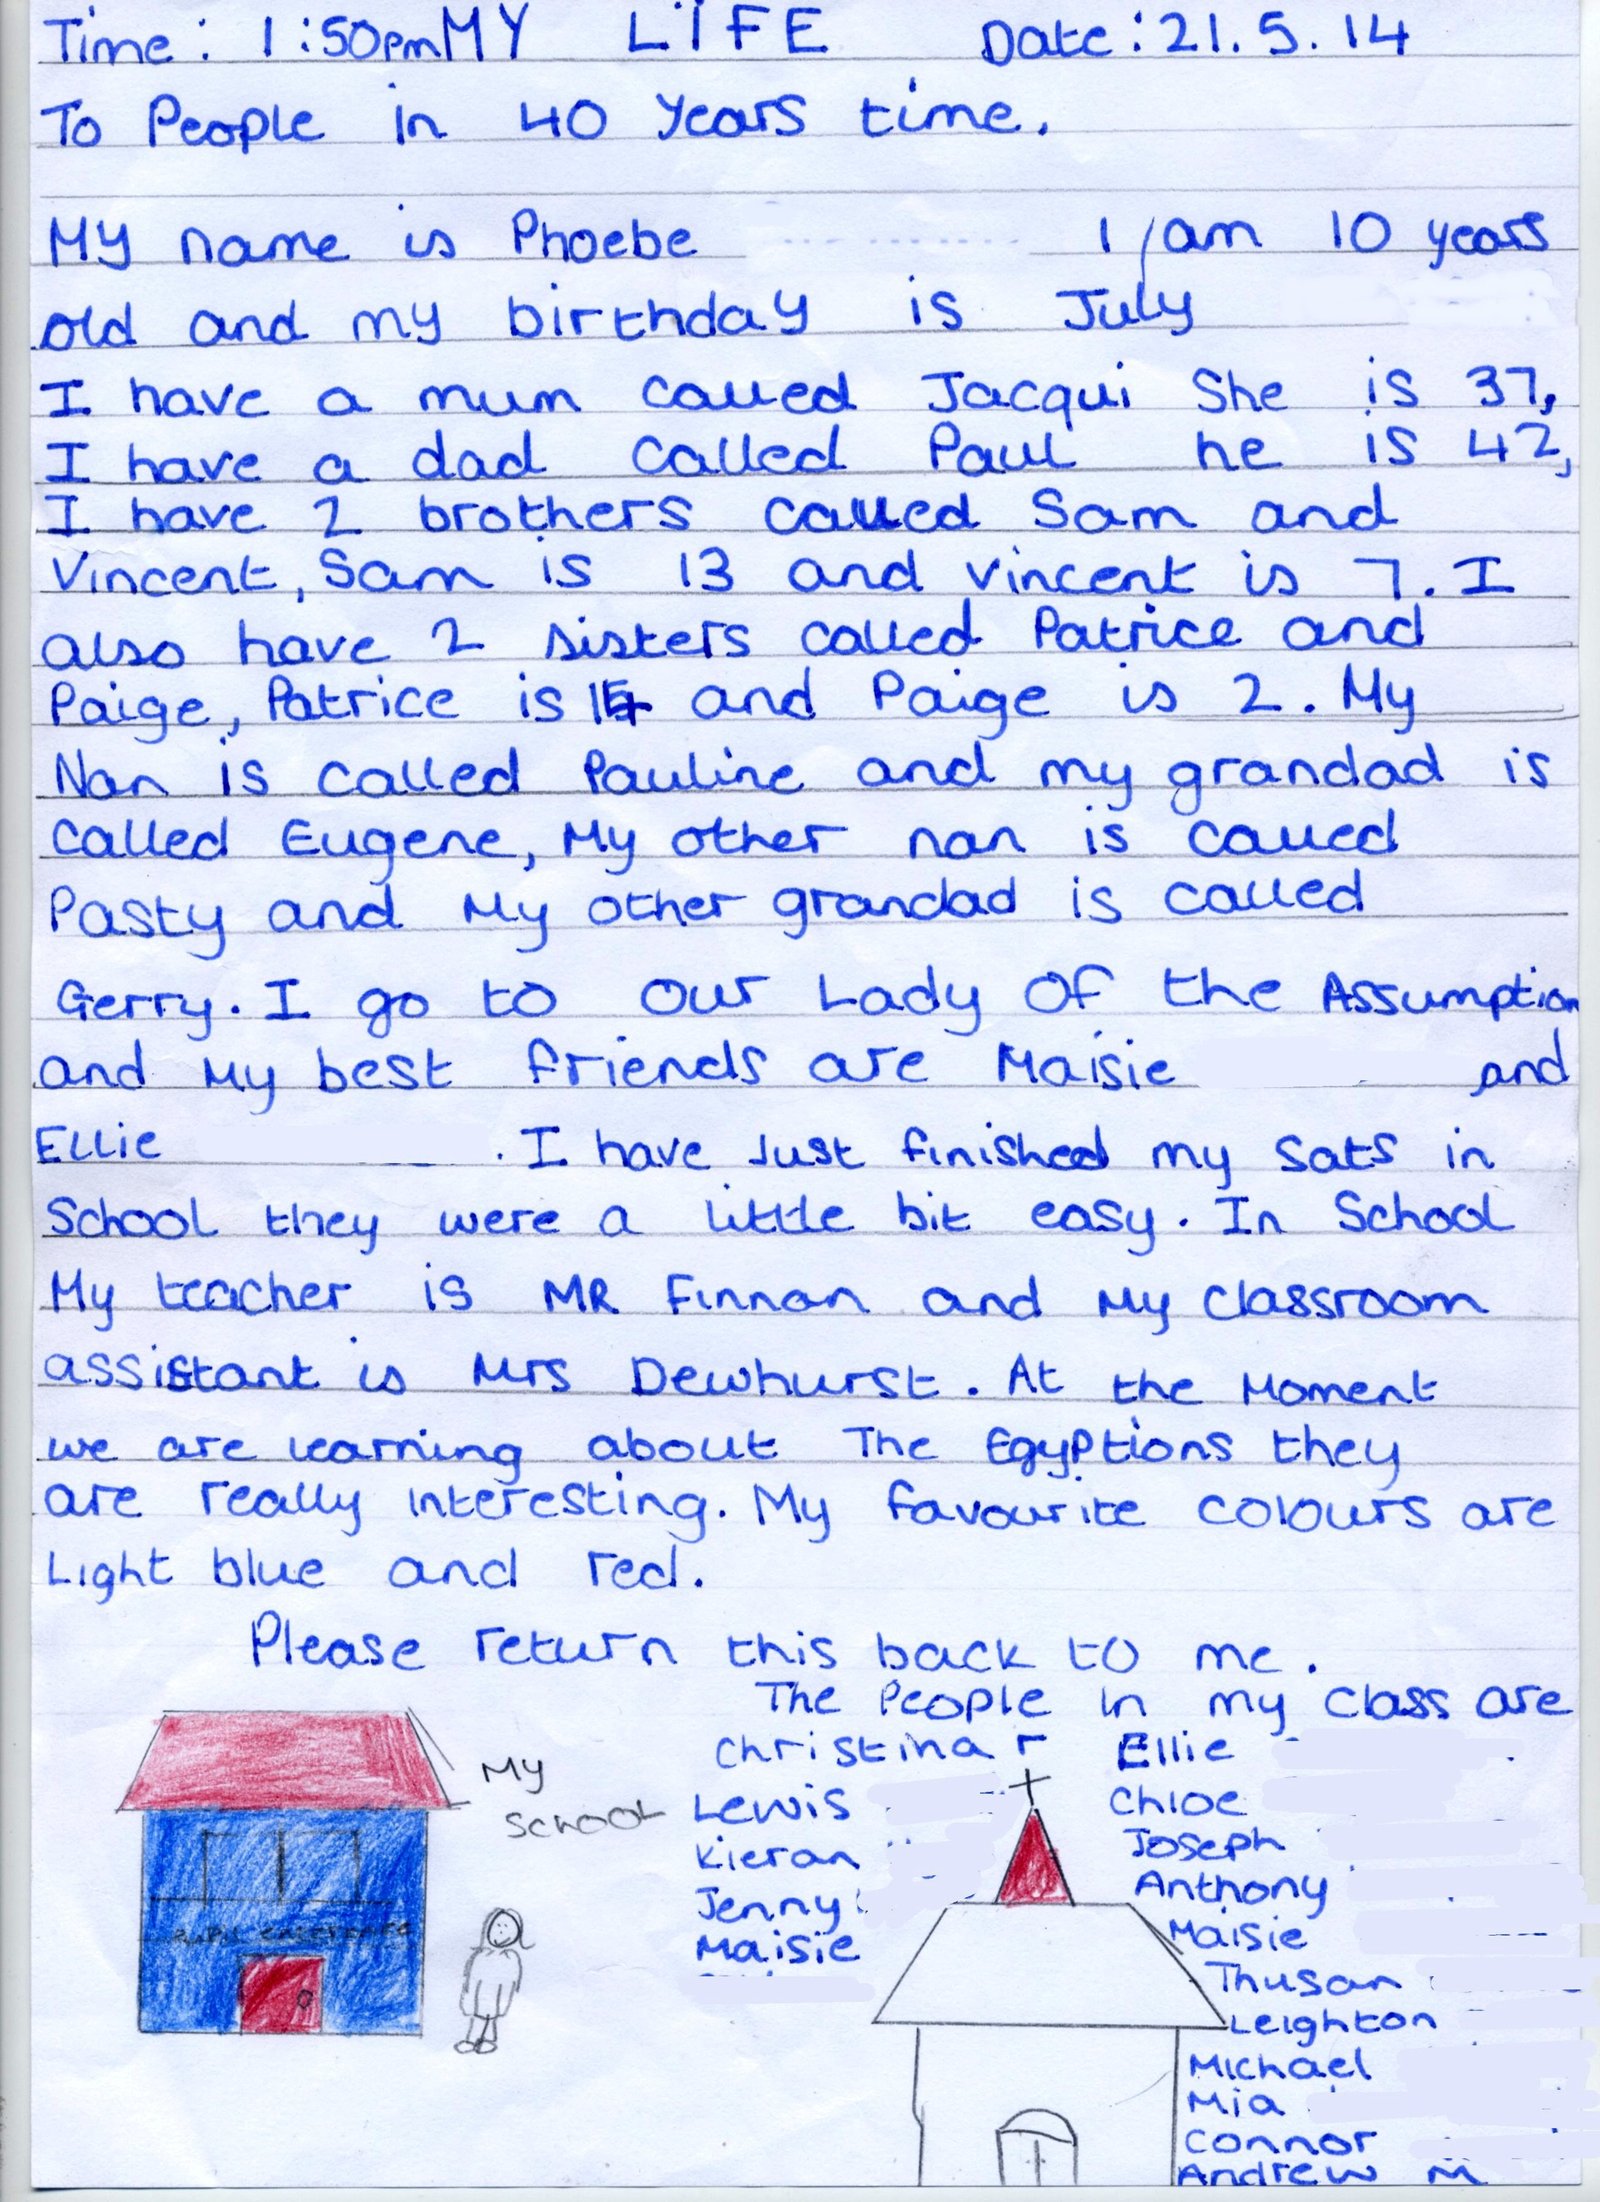 Time: 1:50pm MY LIFE Date: 21.5.14
To People in 40 years time.
My name is Phoebe I am 10 years
old and my birthday is July
I have a mum called Jacqui She is 37,
I have a dad called Paul he is 42,
I have 2 brothers called Sam and
Vincent, Sam is 13 and vincent is 7. I
also have 2 sisters called Patrice and
Paige, Patrice is and Paige is 2. My
Nan is called Pauline and my grandad is
called Eugene, My other nan is called
Pasty and My other grandad is called
Gerry. I go to Our Lady Of the Assumption
and My best friends are Maisie and
Ellie . I have Just finished my Sats in
School they were a little bit easy. In School
My teacher is MR Finnan and My Classroom
assistant is Mrs Dewhurst. At the Moment
we are learning about The Egyptions they
are really interesting. My favourite colours are
Light blue and red.
Please return this back to me.
The People in my class are
Christina r Ellie
Lewis Chloe
Kieran Joseph
Jenny Anthony
Maisie Maisie
Thusan
Leighton
Michael
Mia
Connor
Andrew M
My
School